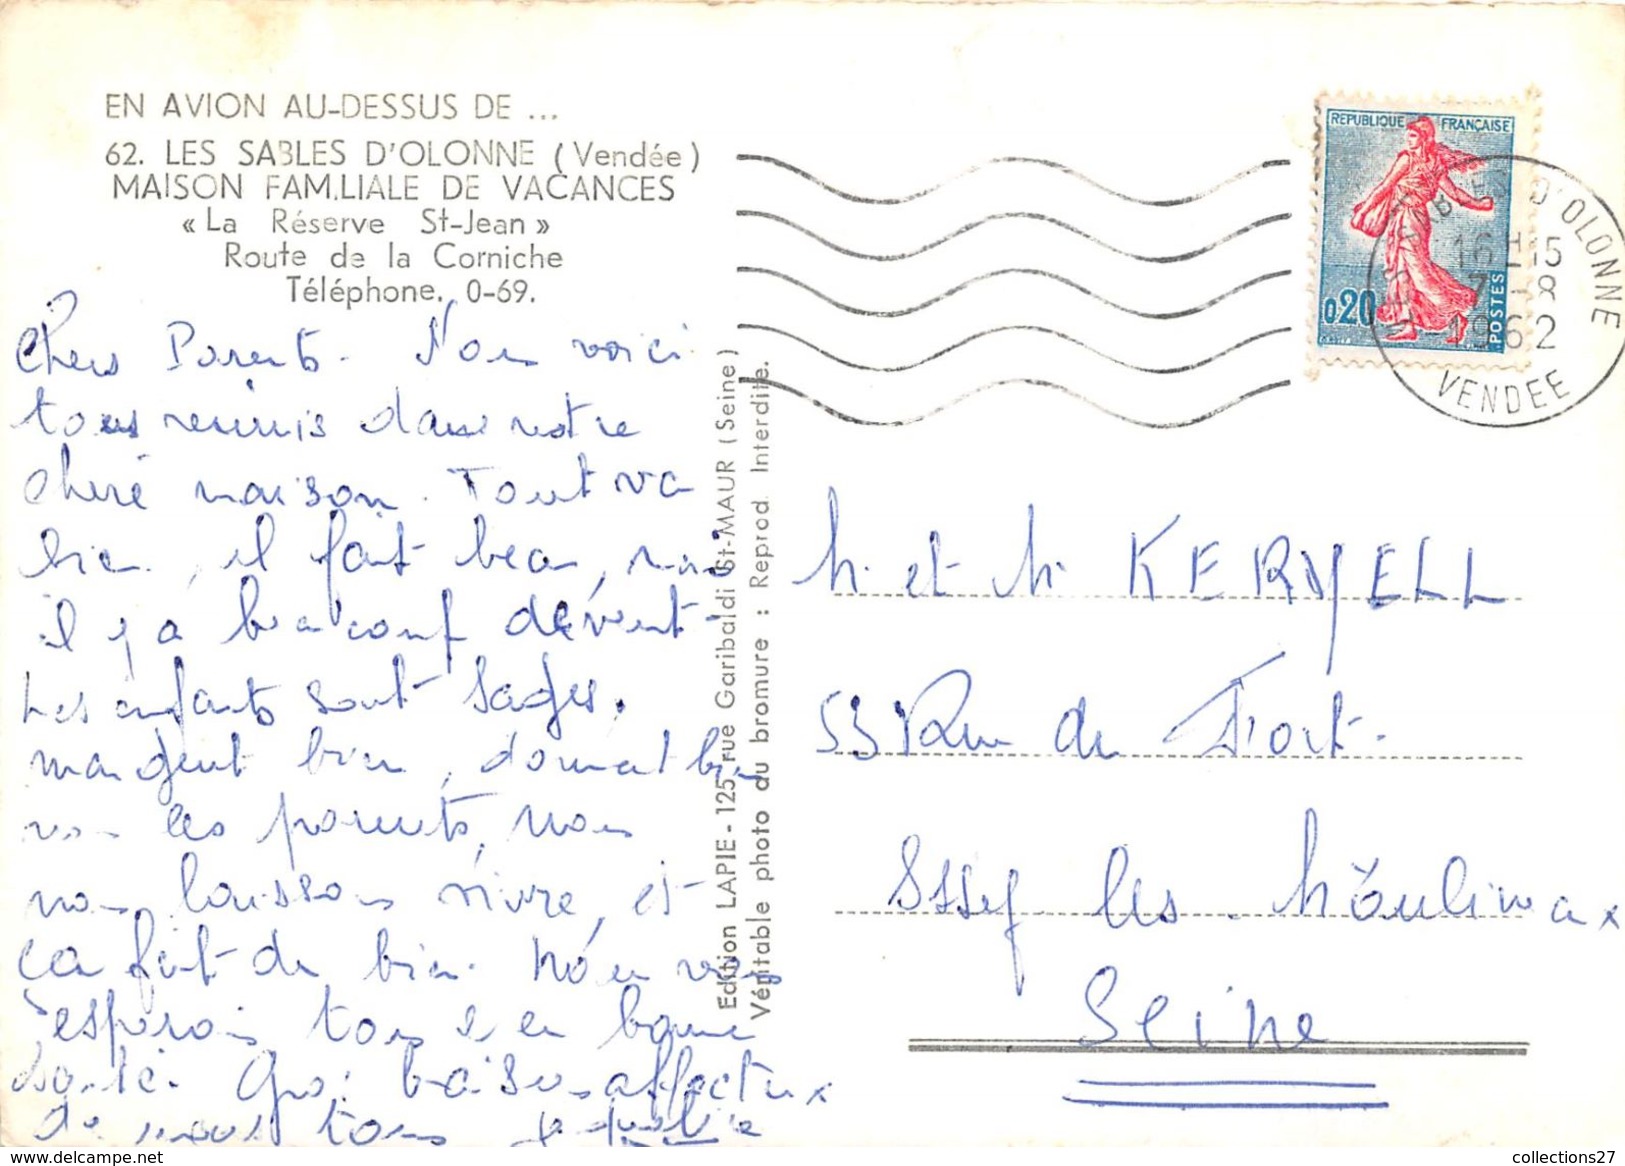 EN AVION AU-DESSUS DE ...
62. LES SABLES D'OLONNE (Vendée)
MAISON FAMILIALE DE VACANCES
« La Réserve St-Jean »
Route de la Corniche
Téléphone. 0-69.
Chers Parents. Nous voici
tous reunis dans notre
chère maison. Tout va
bien, il fait beau, mais
il y a beaucoup de vent.
Les enfants sont sages,
mangent bien, dorment bien
les parents, nous
nous laissons vivre, et
ça fait du bien. Nous vous
esperons tous en bonne
santé. Gros baisers affectueux
de nous tous
Edition LAPIE - 125, rue Garibaldi St-MAUR (Seine)
Véritable photo du bromure : Reprod. Interdite.
REPUBLIQUE FRANÇAISE
0,20
POSTES
LES SABLES D'OLONNE
16H15
7-8
1962
VENDEE
M. et M. KERYELL
53 Rue du Fort.
Issy les Moulineaux
Seine
collections27